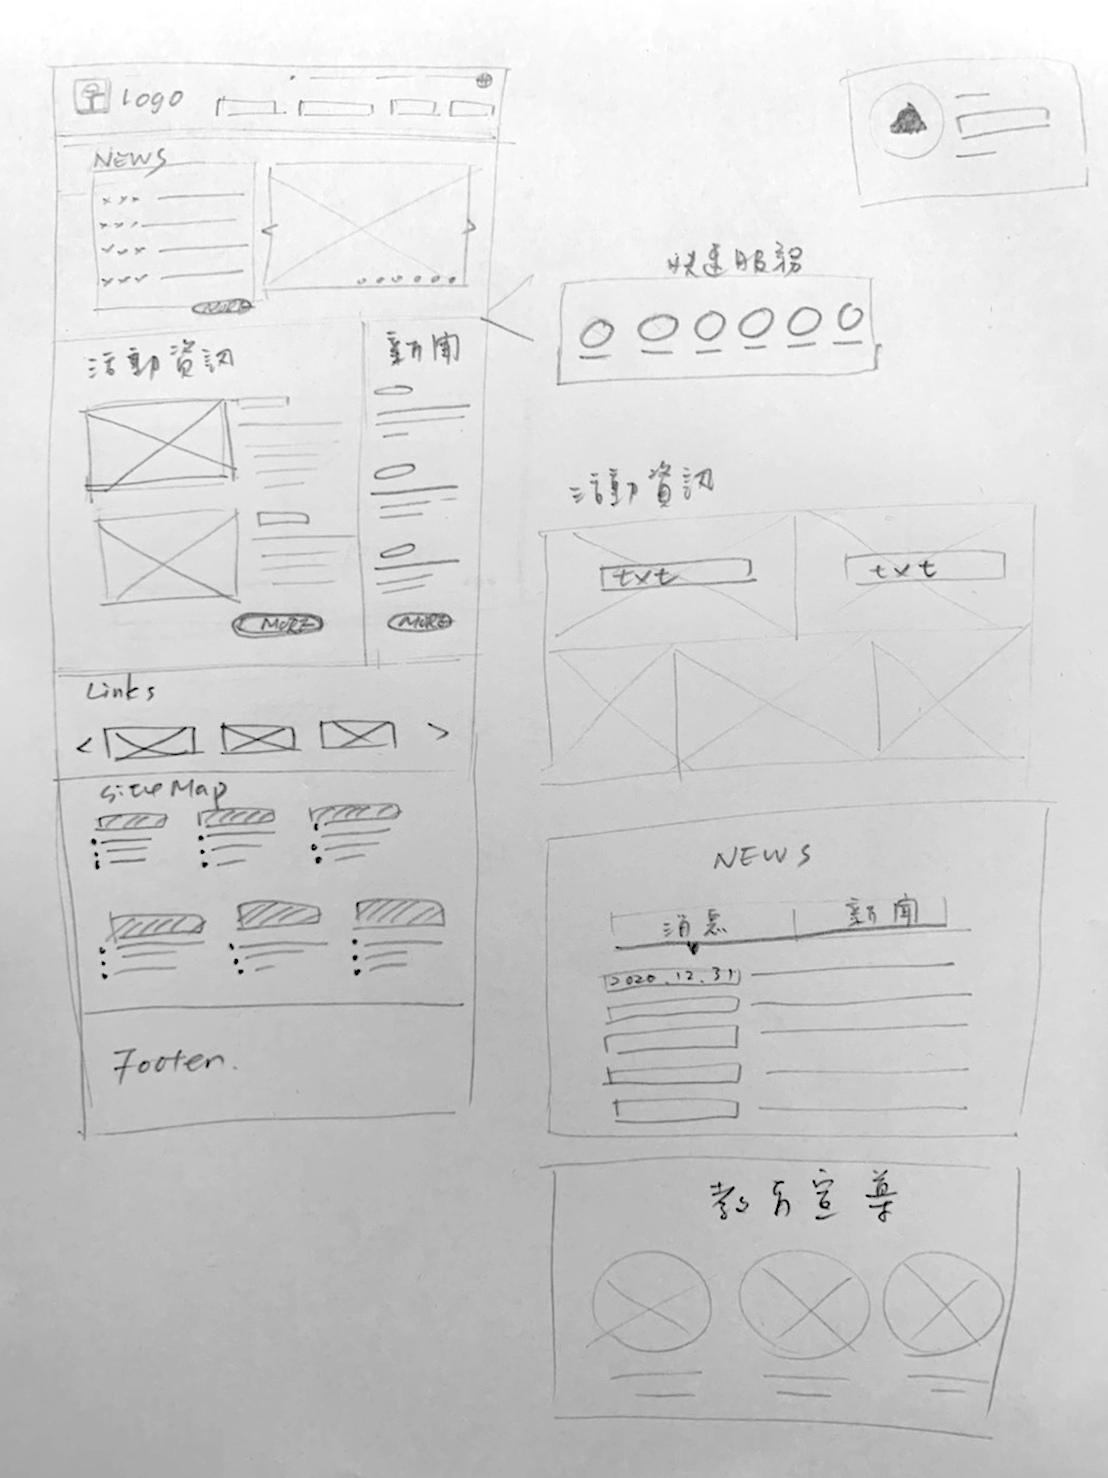 Logo
NEWS
xxx
xxx
xxx
xxx
MORE
活動資訊
新聞
MORE
MORE
Links
site Map
Footer.
快速服務
活動資訊
txt
txt
NEWS
消息
新聞
2020.12.31